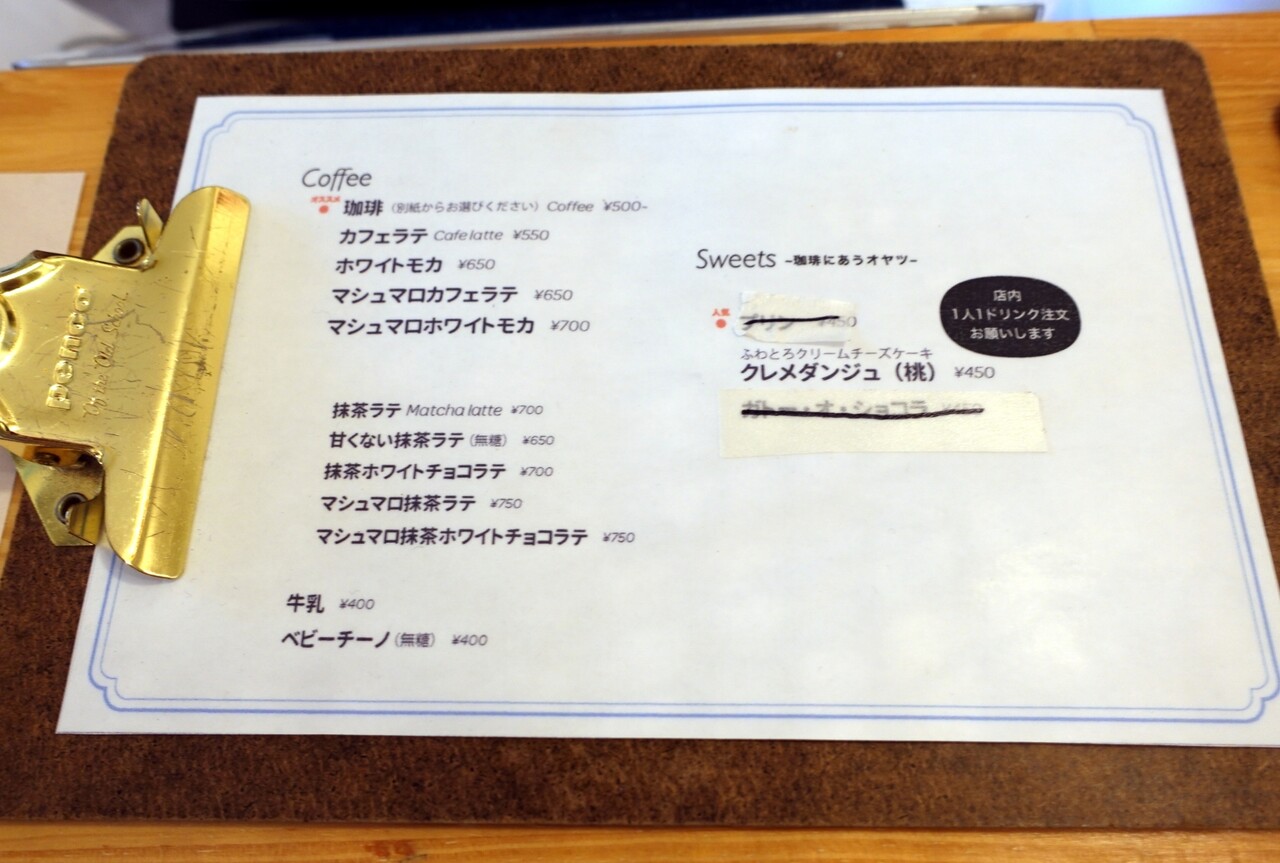 Coffee
オススメ
珈琲（別紙からお選びください）Coffee ¥500-
カフェラテ Cafe latte ¥550
ホワイトモカ ¥650
マシュマロカフェラテ ¥650
マシュマロホワイトモカ ¥700
抹茶ラテ Matcha latte ¥700
甘くない抹茶ラテ（無糖） ¥650
抹茶ホワイトチョコラテ ¥700
マシュマロ抹茶ラテ ¥750
マシュマロ抹茶ホワイトチョコラテ ¥750
牛乳 ¥400
ベビーチーノ（無糖） ¥400
Sweets -珈琲にあうオヤツ-
人気
プリン ¥450
ふわとろクリームチーズケーキ
クレメダンジュ（桃） ¥450
ガトー・オ・ショコラ ¥450
店内
1人1ドリンク注文
お願いします
penco